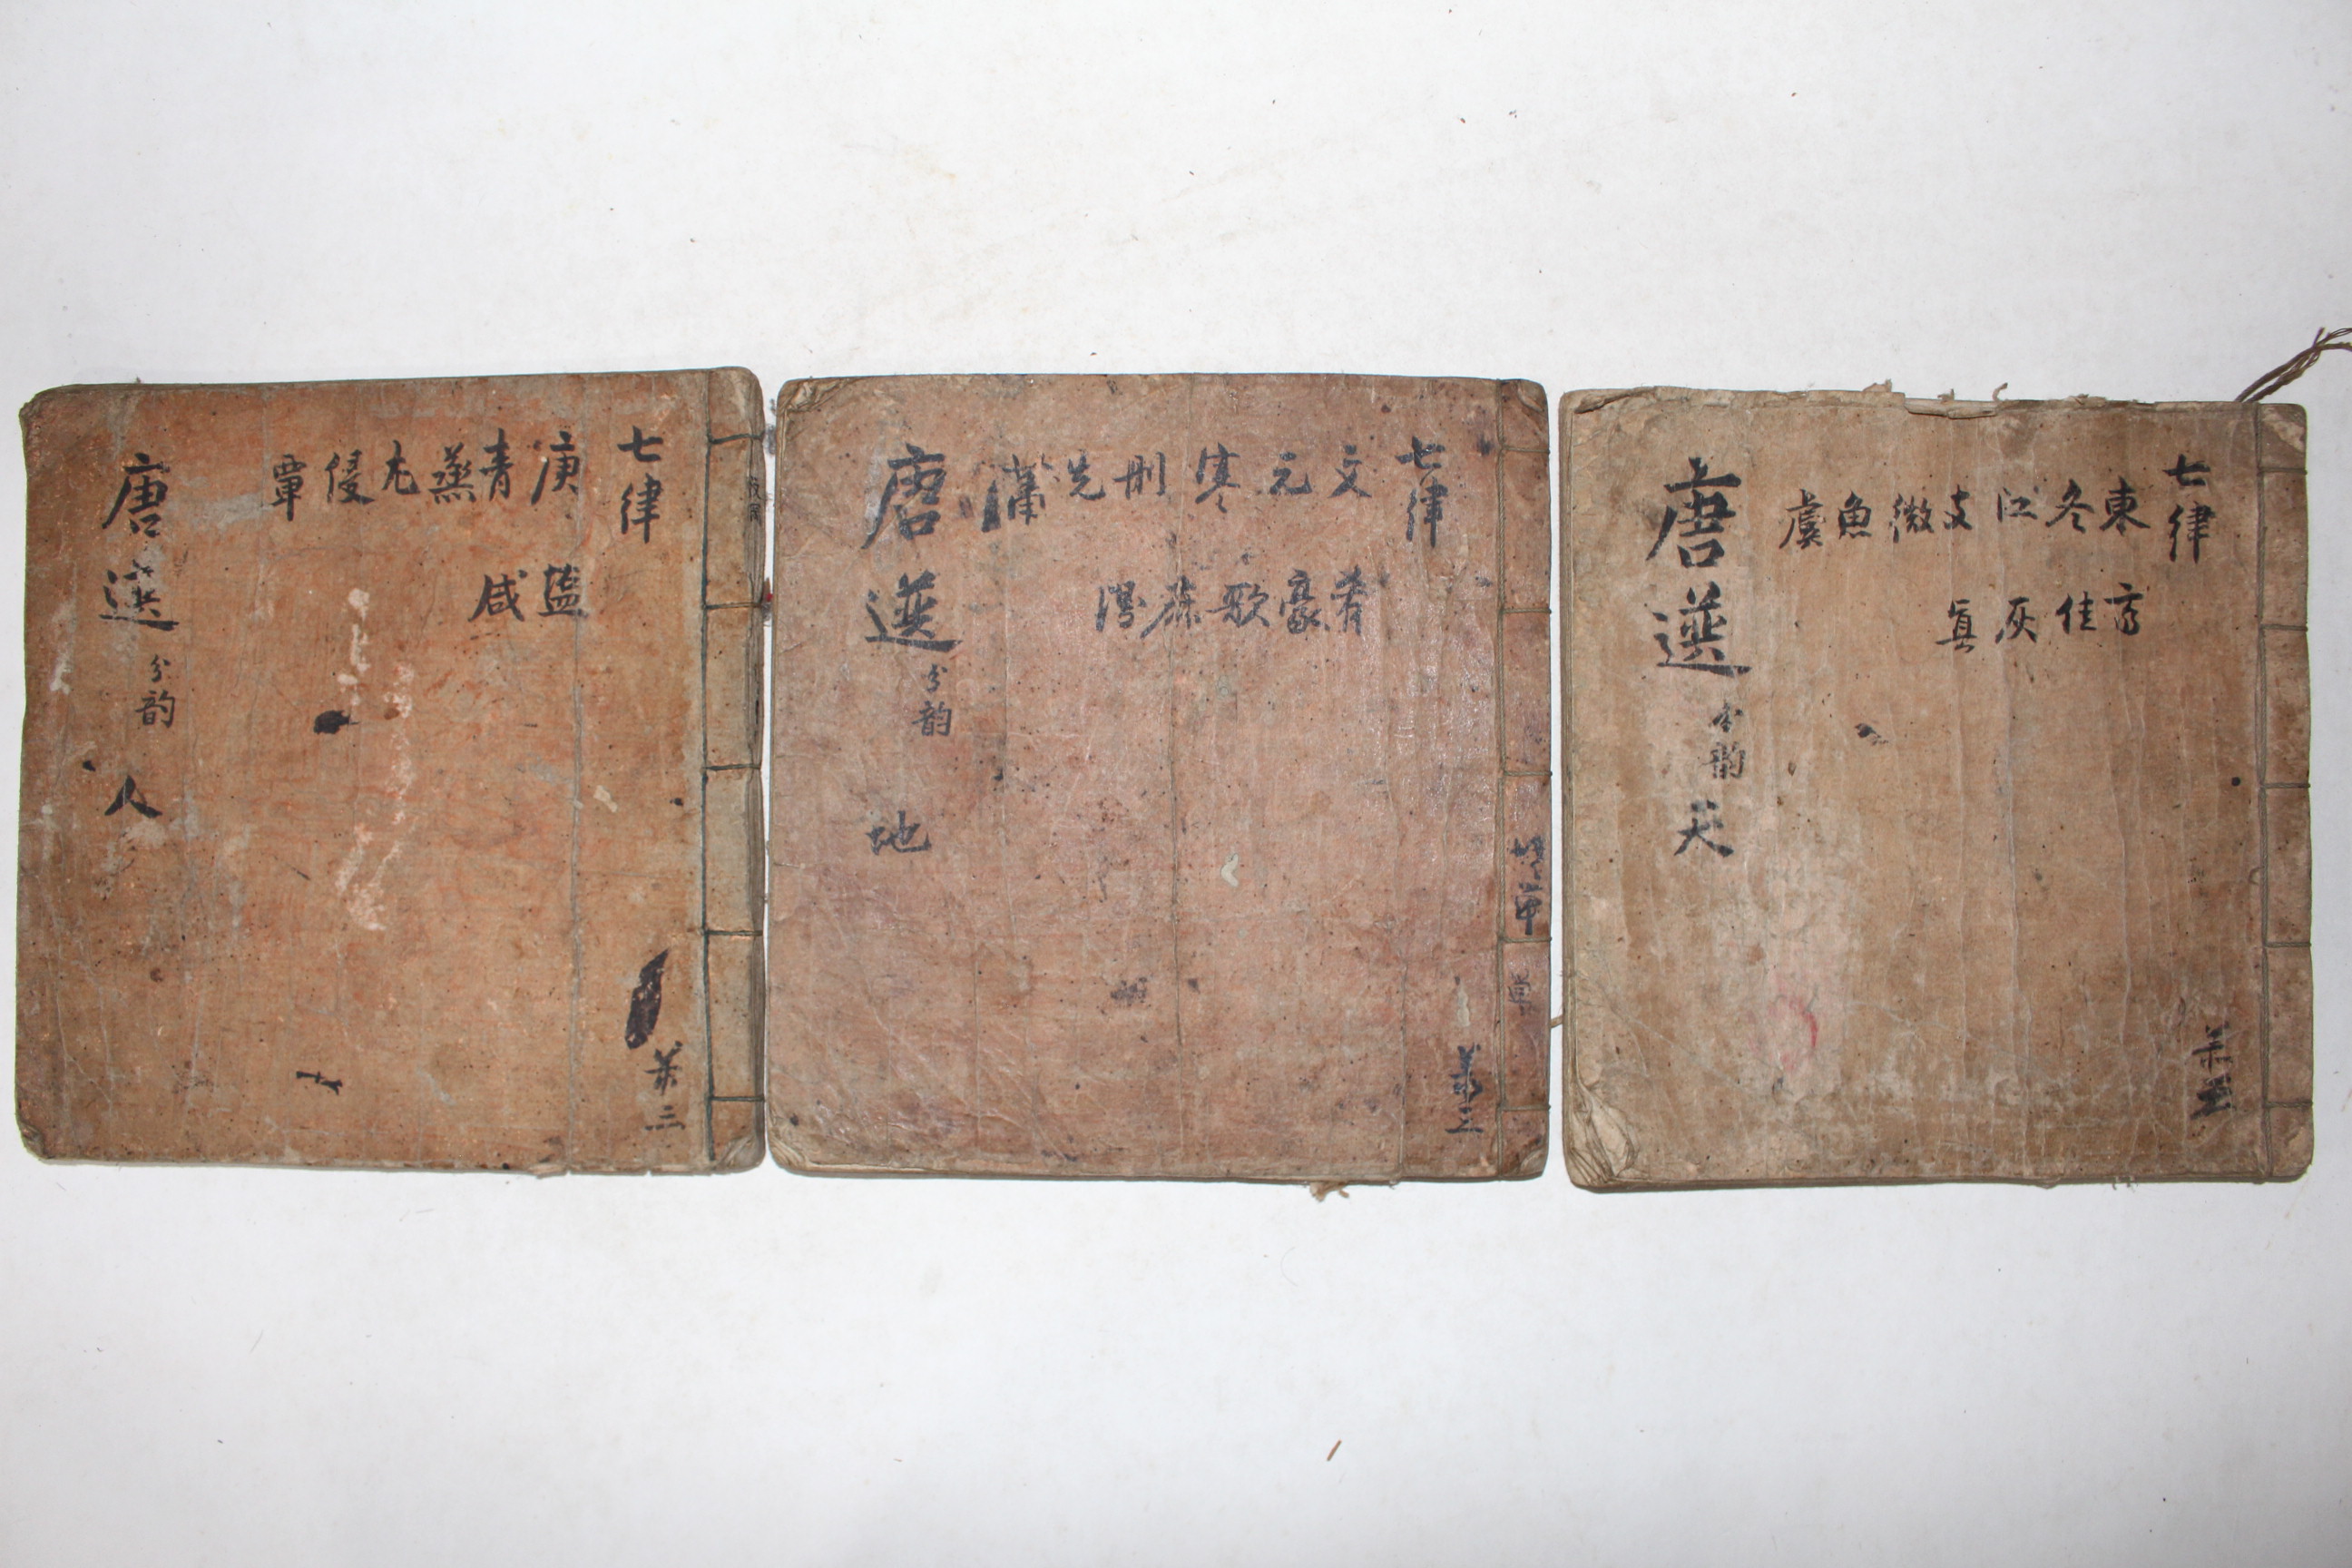 七律
東冬江支微魚虞
齊佳灰眞
唐選 分韵 天
七律
文元寒刪先蕭
肴豪歌麻陽
唐選 分韵 地
七律
庚青蒸尤侵覃
塩咸
唐選 分韵 人